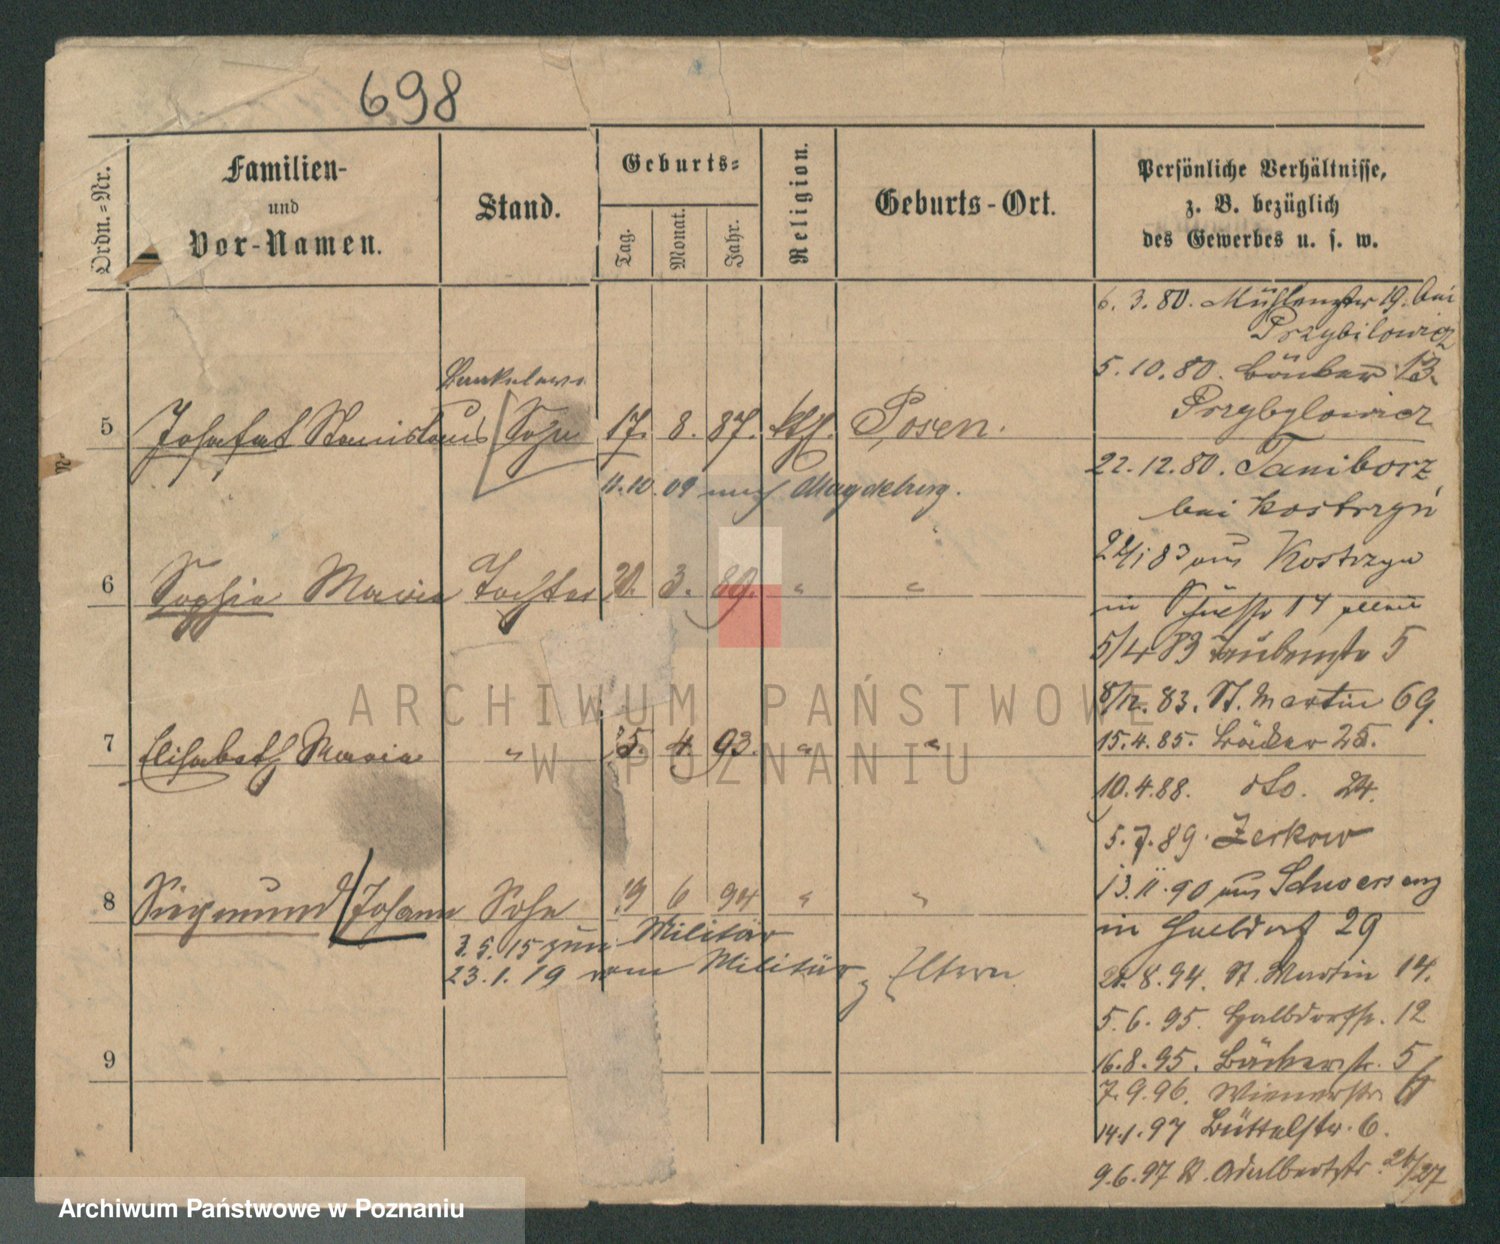 698
Ordn.-Nr.
Familien-
und
Vor-Namen.
Stand.
Geburts-
Tag.
Monat.
Jahr.
Religion.
Geburts-Ort.
Persönliche Verhältnisse,
z. B. bezüglich
des Gewerbes u. s. w.
6. 3. 80. Mühlenstr 19. bei
Przybilowicz
5. 10. 80. Bäcker 13.
Przybylowicz
5 Josafat Stanislaus Sohn 17. 8. 87. kth. Posen.
11.10.09 nach Magdeburg.
22.12.80. Taniborz
bei Kostrzyn
aus Kostrzyn
6 Sophie Maria Tochter 20. 3. 89. " "
in 17
5/4 83 5
8/12. 83. St. Martin 69.
7 Elisabeth Maria " 4. 93. " "
15.4.85. Bäcker 25.
10.4.88. dto. 24.
5.7.89. Zerkow
13.11.90 aus Schwersenz
8 Siegmund Johann Sohn 19 6 94 " "
in Halbdorf 29
3.5.15 zum Militär
23.1.19 vom Militär z. Eltern
8.94. St. Martin 14.
5.6.95. Halbdorfstr. 12
16.8.95. Bäckerstr. 5
9
7.9.96. Wienerstr. 6
14.1.97 Büttelstr. 6.
9.6.97 St. Adalbertstr. 26/27
ARCHIWUM PAŃSTWOWE
W POZNANIU
Archiwum Państwowe w Poznaniu